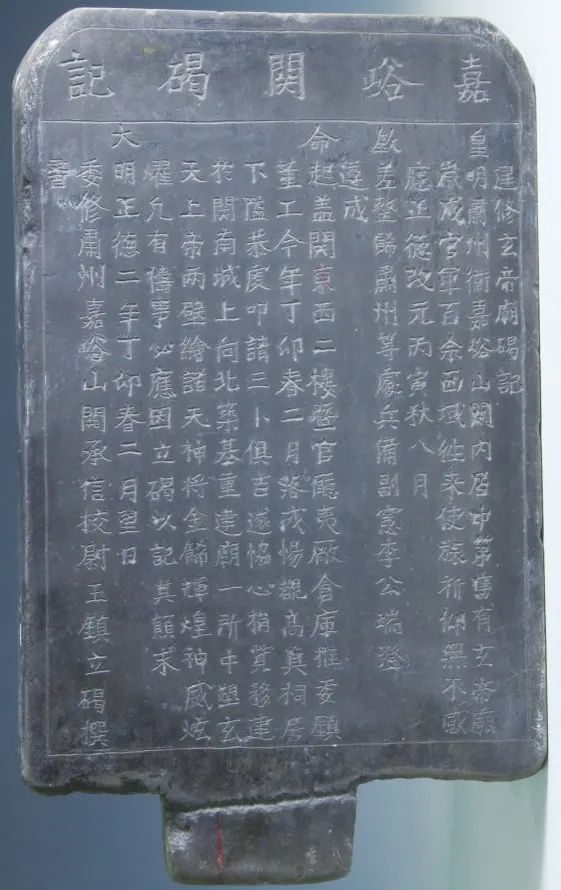 嘉峪關碣記
建修玄帝廟碣記
皇明肅州衛嘉峪山關內居中第舊有玄帝廟
蒙戍官軍百余西域往來使旅祈仰無不感
應正德改元丙寅秋八月
欽差整飭肅州等處兵備副憲李公瑞澄
遵成
命起盖關東西二樓暨官廳夷廠倉庫推委鎮
董工今年丁卯春二月落成悵觀高真祠居
下隘恭虔叩請三卜俱吉遂協心捐貲移建
於關南城上向北築基重建廟一所中塑玄
天上帝兩壁繪諸天神将金飾輝煌神威炫
耀凡有禱事必應因立碣以記其顛末
大明正德二年丁卯春二月望日
委修肅州嘉峪山關承信校尉王鎮立碣撰
書